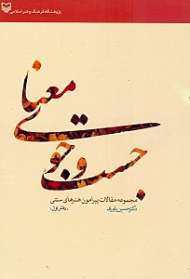 پژوهشگاه فرهنگ و هنر اسلامی
جست و جوی
معنای
مجموعه مقالات پیرامون هنرهای سنتی
دکتر حسین یاوری
«دفتر اول»